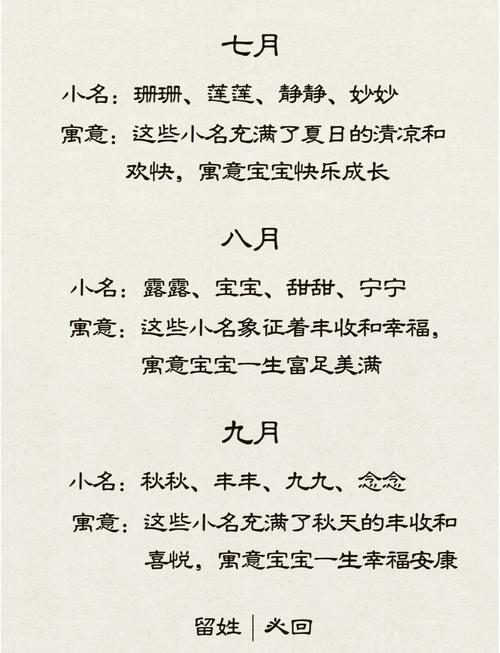 七月
小名：珊珊、莲莲、静静、妙妙
寓意：这些小名充满了夏日的清凉和
欢快，寓意宝宝快乐成长
八月
小名：露露、宝宝、甜甜、宁宁
寓意：这些小名象征着丰收和幸福，
寓意宝宝一生富足美满
九月
小名：秋秋、丰丰、九九、念念
寓意：这些小名充满了秋天的丰收和
喜悦，寓意宝宝一生幸福安康
留姓｜必回